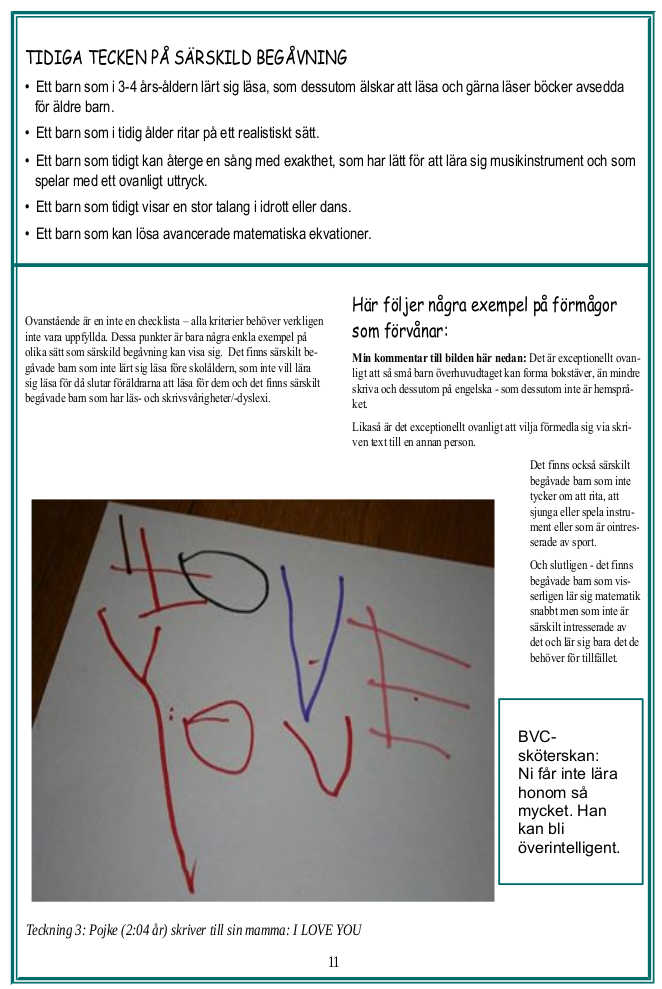 TIDIGA TECKEN PÅ SÄRSKILD BEGÅVNING
• Ett barn som i 3-4 års-åldern lärt sig läsa, som dessutom älskar att läsa och gärna läser böcker avsedda
för äldre barn.
• Ett barn som i tidig ålder ritar på ett realistiskt sätt.
• Ett barn som tidigt kan återge en sång med exakthet, som har lätt för att lära sig musikinstrument och som
spelar med ett ovanligt uttryck.
• Ett barn som tidigt visar en stor talang i idrott eller dans.
• Ett barn som kan lösa avancerade matematiska ekvationer.
Ovanstående är en inte en checklista – alla kriterier behöver verkligen
inte vara uppfyllda. Dessa punkter är bara några enkla exempel på
olika sätt som särskild begåvning kan visa sig. Det finns särskilt be-
gåvade barn som inte lärt sig läsa före skolåldern, som inte vill lära
sig läsa för då slutar föräldrarna att läsa för dem och det finns särskilt
begåvade barn som har läs- och skrivsvårigheter/-dyslexi.
Här följer några exempel på förmågor
som förvånar:
Min kommentar till bilden här nedan: Det är exceptionellt ovan-
ligt att så små barn överhuvudtaget kan forma bokstäver, än mindre
skriva och dessutom på engelska - som dessutom inte är hemsprå-
ket.
Likaså är det exceptionellt ovanligt att vilja förmedla sig via skri-
ven text till en annan person.
Det finns också särskilt
begåvade barn som inte
tycker om att rita, att
sjunga eller spela instru-
ment eller som är ointres-
serade av sport.
Och slutligen - det finns
begåvade barn som vis-
serligen lär sig matematik
snabbt men som inte är
särskilt intresserade av
det och lär sig bara det de
behöver för tillfället.
I L O V E
Y O U
BVC-
sköterskan:
Ni får inte lära
honom så
mycket. Han
kan bli
överintelligent.
Teckning 3: Pojke (2:04 år) skriver till sin mamma: I LOVE YOU
11